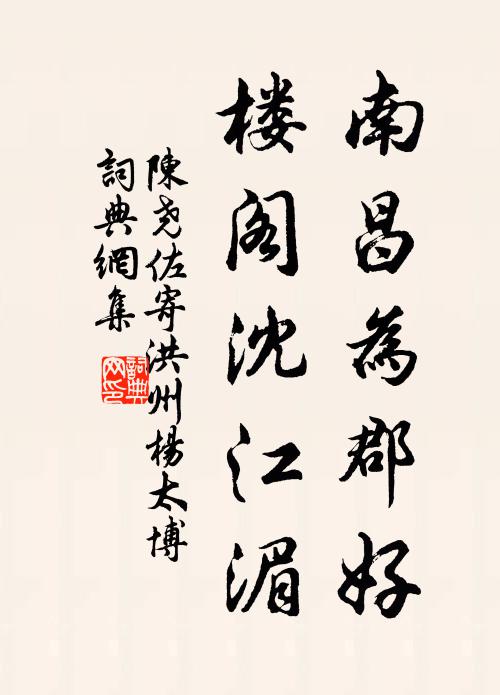 南昌為郡好
楼阁沈江湄
陳尧佐寄洪州楊太博
詞典網集
詞典网印